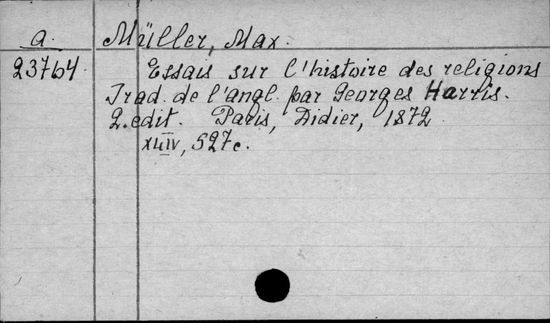 a.
Müller, Max.
23764
Essais sur l'histoire des religions
Trad. de l'angl. par Georges Harris.
2. edit. Paris, Didier, 1872
XLIV, 527c.